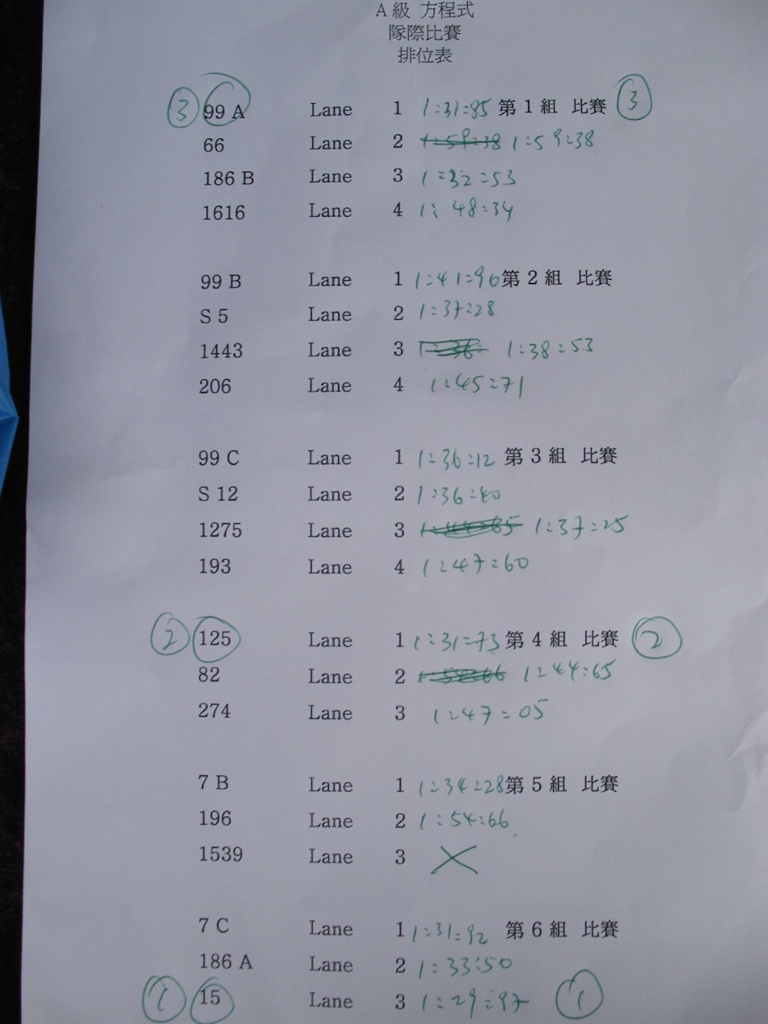 A 級 方程式
隊際比賽
排位表
③ 99 A Lane 1 1:31:85 第 1 組 比賽 ③
66 Lane 2 1:59:38 1:59:38
186 B Lane 3 1:32:53
1616 Lane 4 1:48:34
99 B Lane 1 1:41:96 第 2 組 比賽
S 5 Lane 2 1:37:28
1443 Lane 3 1:38:53
206 Lane 4 1:45:71
99 C Lane 1 1:36:12 第 3 組 比賽
S 12 Lane 2 1:36:40
1275 Lane 3 1:44:65 1:37:25
193 Lane 4 1:47:60
② 125 Lane 1 1:31:73 第 4 組 比賽 ②
82 Lane 2 1:44:65
274 Lane 3 1:47:05
7 B Lane 1 1:34:28 第 5 組 比賽
196 Lane 2 1:54:66
1539 Lane 3 X
7 C Lane 1 1:31:92 第 6 組 比賽
186 A Lane 2 1:33:50
① 15 Lane 3 1:29:97 ①